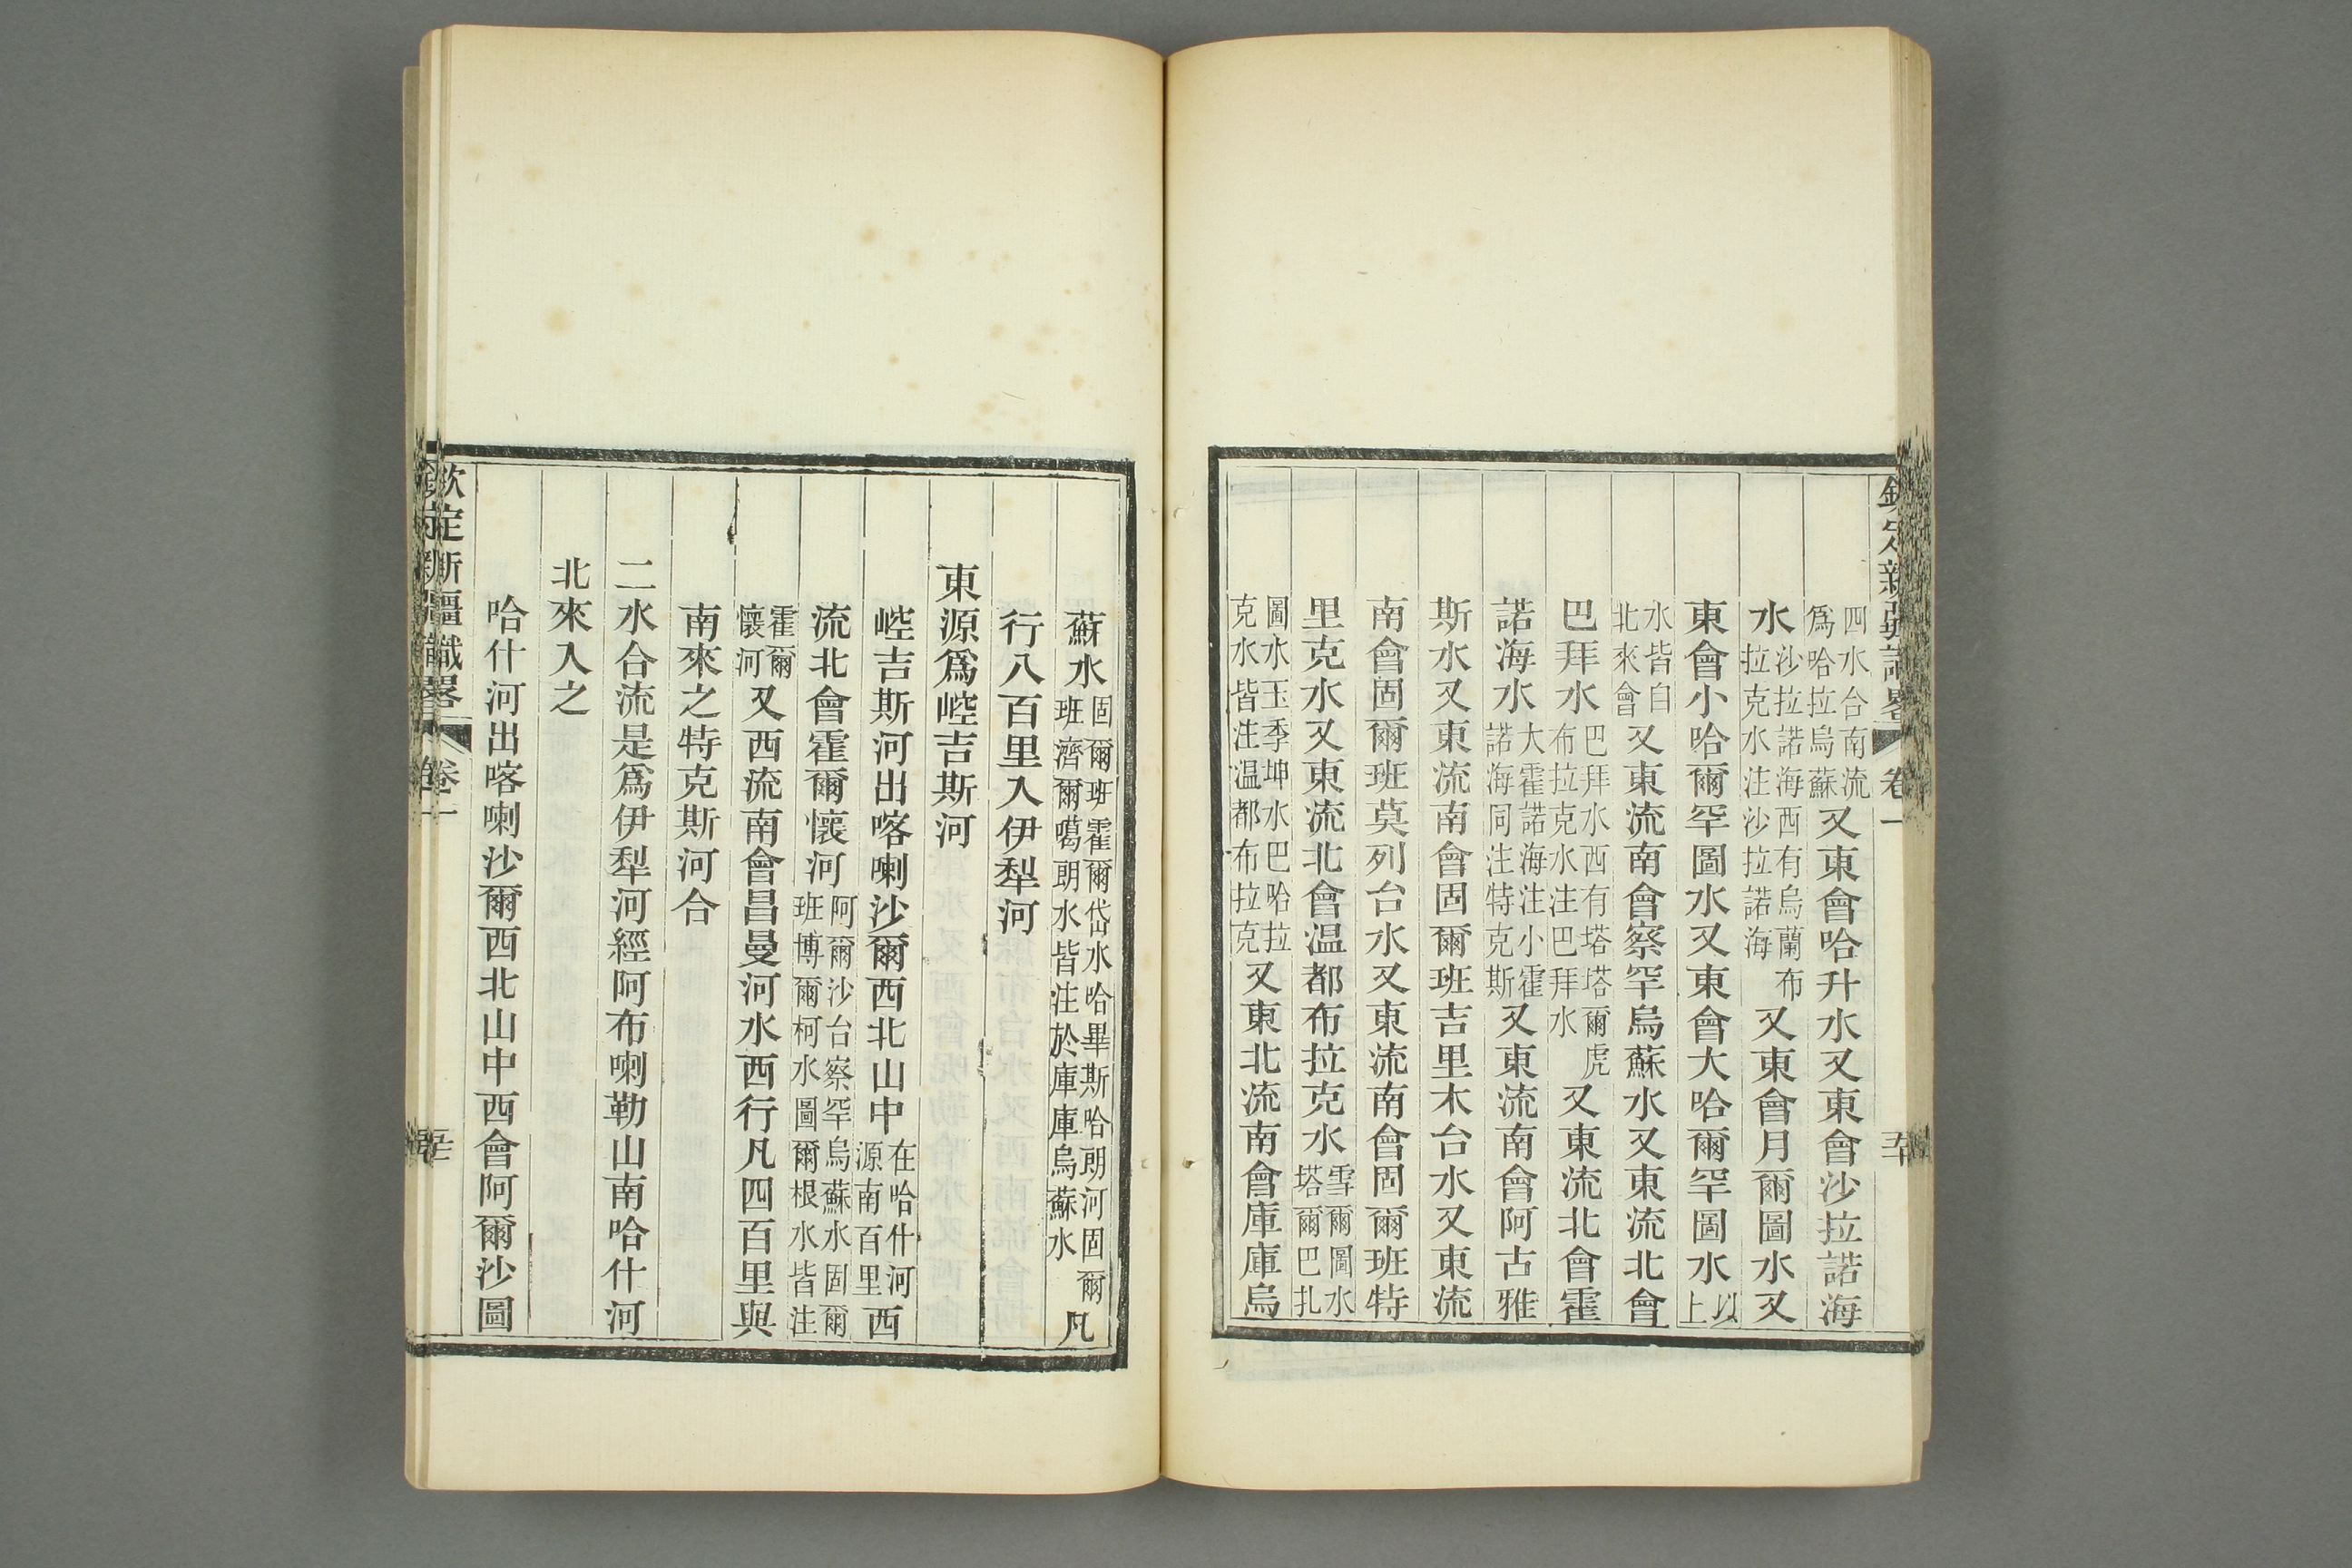 欽定新疆識畧 卷一
四水合南流
爲哈拉烏蘇
又東會哈升水又東會沙拉諾海
水
沙拉諾海西有烏蘭布
拉克水注沙拉諾海
又東會月爾圖水又
東會小哈爾罕圖水又東會大哈爾罕圖水
以
上
水皆自
北來會
又東流南會察罕烏蘇水又東流北會
巴拜水
巴拜水西有塔塔爾虎
布拉克水注巴拜水
又東流北會霍
諾海水
大霍諾海注小霍
諾海同注特克斯
又東流南會阿古雅
斯水又東流南會固爾班吉里木台水又東流
南會固爾班莫列台水又東流南會固爾班特
里克水又東流北會温都布拉克水
雪爾圖水
塔爾巴扎
圖水玉季坤水巴哈拉
克水皆注温都布拉克
又東北流南會庫庫烏
蘇水
固爾班霍爾岱水哈畢斯哈朗河固爾
班濟爾噶朗水皆注於庫庫烏蘇水
凡
行八百里入伊犁河
東源爲崆吉斯河
崆吉斯河出喀喇沙爾西北山中
在哈什河
源南百里
西
流北會霍爾懷河
阿爾沙台察罕烏蘇水固爾
班博爾柯水圖爾根水皆注
霍爾
懷河
又西流南會昌曼河水西行凡四百里與
南來之特克斯河合
二水合流是爲伊犁河經阿布喇勒山南哈什河
北來入之
哈什河出喀喇沙爾西北山中西會阿爾沙圖
欽定新疆識畧 卷一